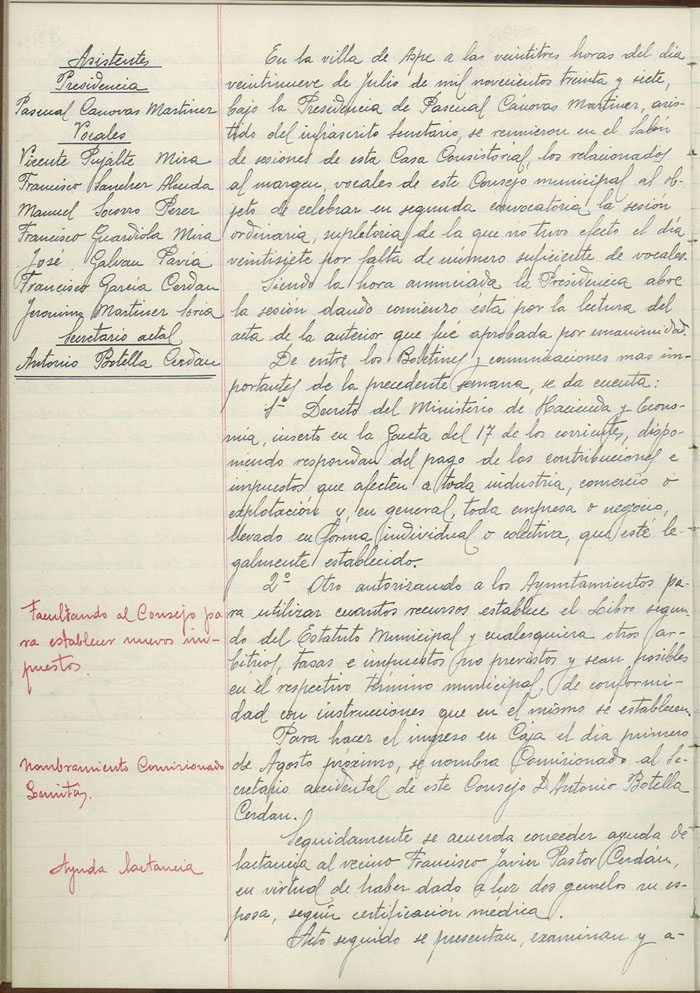 Asistentes
Presidencia
Pascual Canovas Martinez
Vocales
Vicente Pujalte Mira
Francisco Sanchez Alenda
Manuel Socorro Perez
Francisco Guardiola Mira
Jose Galvan Pavia
Francisco Garcia Cerdan
Jeronimo Martinez Soria
Secretario actal
Antonio Botella Cerdan
En la villa de Aspe a las veintitres horas del dia
veintinueve de Julio de mil novecientos treinta y siete,
bajo la Presidencia de Pascual Canovas Martinez, asis-
tido del infrascrito Secretario, se reunieron en el Salón
de sesiones de esta Casa Consistorial, los relacionados
al margen, vocales de este Consejo municipal al ob-
jeto de celebrar en segunda convocatoria la sesión
ordinaria, supletoria de la que no tuvo efecto el día
veintisiete por falta de número suficiente de vocales.
Siendo la hora anunciada la Presidencia abre
la sesión dando comienzo ésta por la lectura del
acta de la anterior que fué aprobada por unanimidad.
De entre los Boletines y comunicaciones mas im-
portantes de la precedente semana, se da cuenta:
1º Decreto del Ministerio de Hacienda y Econo-
mía, inserto en la Gaceta del 17 de los corrientes, dispo-
niendo respondan del pago de las contribuciones e
impuestos que afecten a toda industria, comercio o
explotación y, en general, toda empresa o negocio,
llevado en forma individual o colectiva, que esté le-
galmente establecido.
Facultando al Consejo pa
ra establecer nuevos im-
puestos.
2º Otro autorizando a los Ayuntamientos pa-
ra utilizar cuantos recursos establece el Libro segun-
do del Estatuto Municipal y cualesquiera otros ar-
bitrios, tasas e impuestos no previstos y sean posibles
en el respectivo término municipal, de conformi-
dad con instrucciones que en el mismo se establecen.
Nombramiento Comisionado
Para hacer el ingreso en Caja el día primero
de Agosto próximo, se nombra Comisionado al Se-
cretario accidental de este Consejo D. Antonio Botella
Cerdan.
Ayuda lactancia
Seguidamente se acuerda conceder ayuda de
lactancia al vecino Francisco Javier Pastor Cerdán,
en virtud de haber dado a luz dos gemelos su es-
posa, según certificación médica.
Acto seguido se presentan, examinan y a-